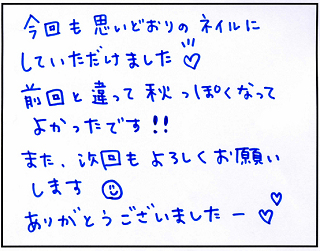 今回も思いどおりのネイルに
していただけました♡
前回と違って秋っぽくなって
よかったです!!
また、次回もよろしくお願い
します☺
ありがとうございましたー♡♡